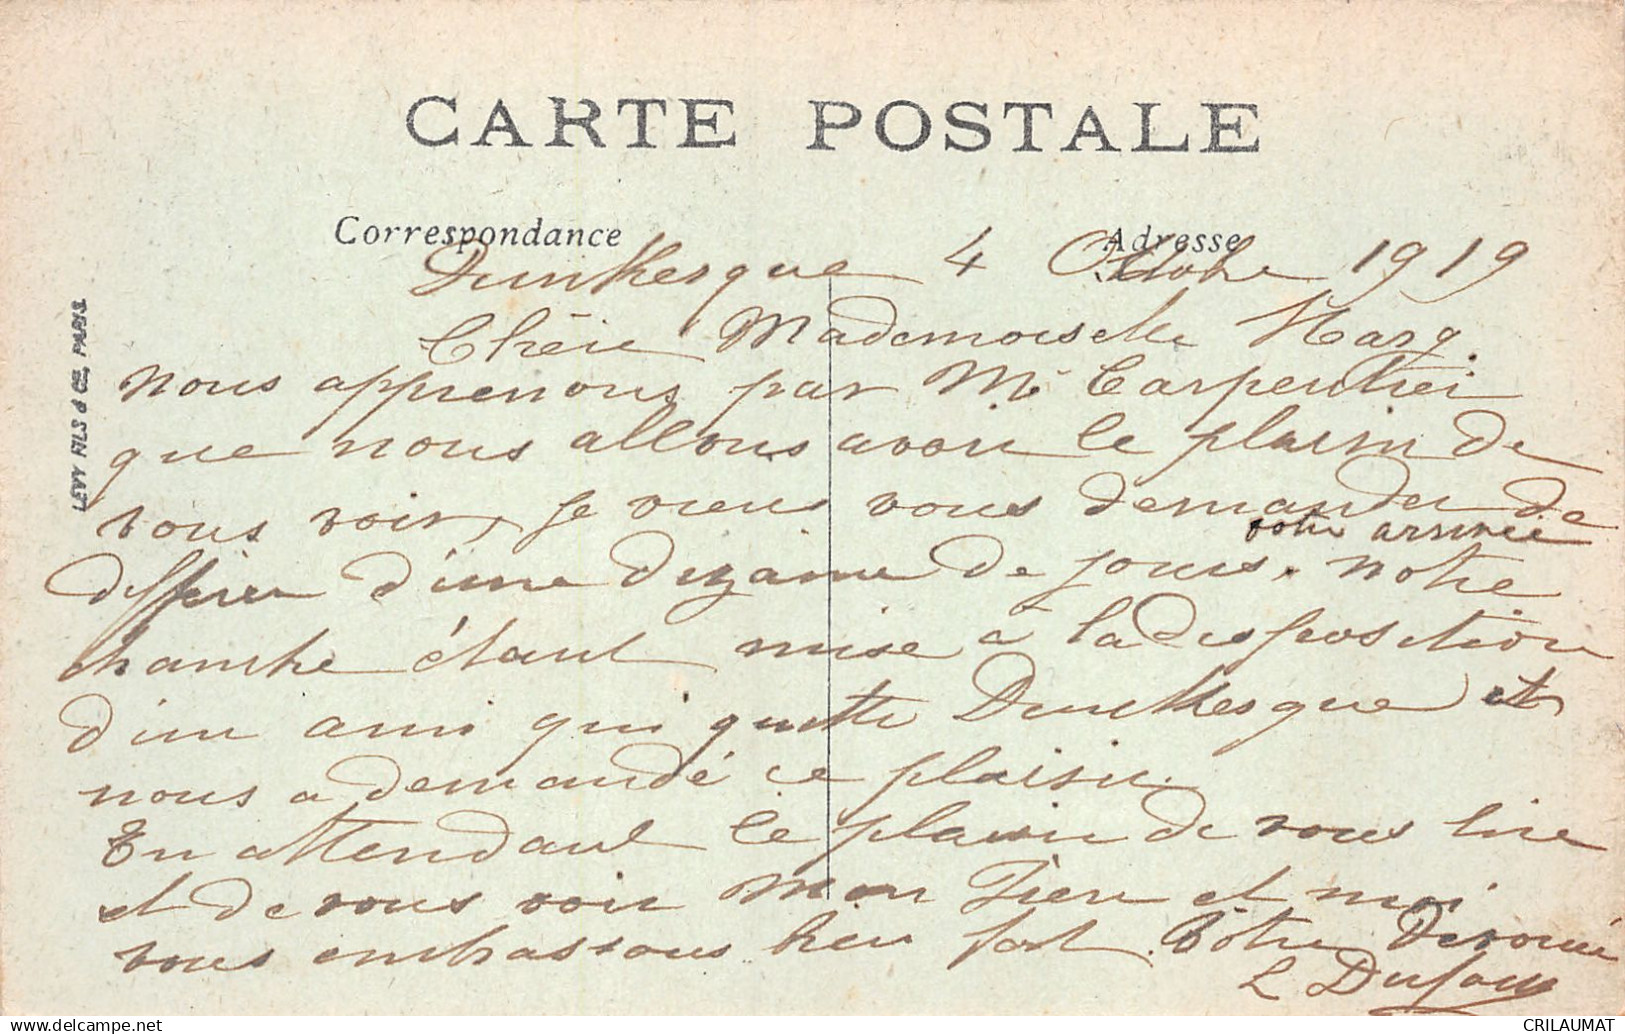 CARTE POSTALE
Correspondance
Adresse
LEVY FILS & CIE, PARIS
Dunkerque 4 Octobre 1919
Chère Mademoiselle
nous apprenons par Mr Carpentier
que nous allons avoir le plaisir de
vous voir, je viens vous demander de
votre arrivée
différer d'une dizaine de jours. notre
chambre étant mise à la disposition
d'un ami qui quitte Dunkerque et
nous a demandé ce plaisir.
En attendant le plaisir de vous lire
et de vous voir Mon Frère et moi
vous embrassons bien fort. Vôtre Dévouée
L Dufour
CRILAUMAT